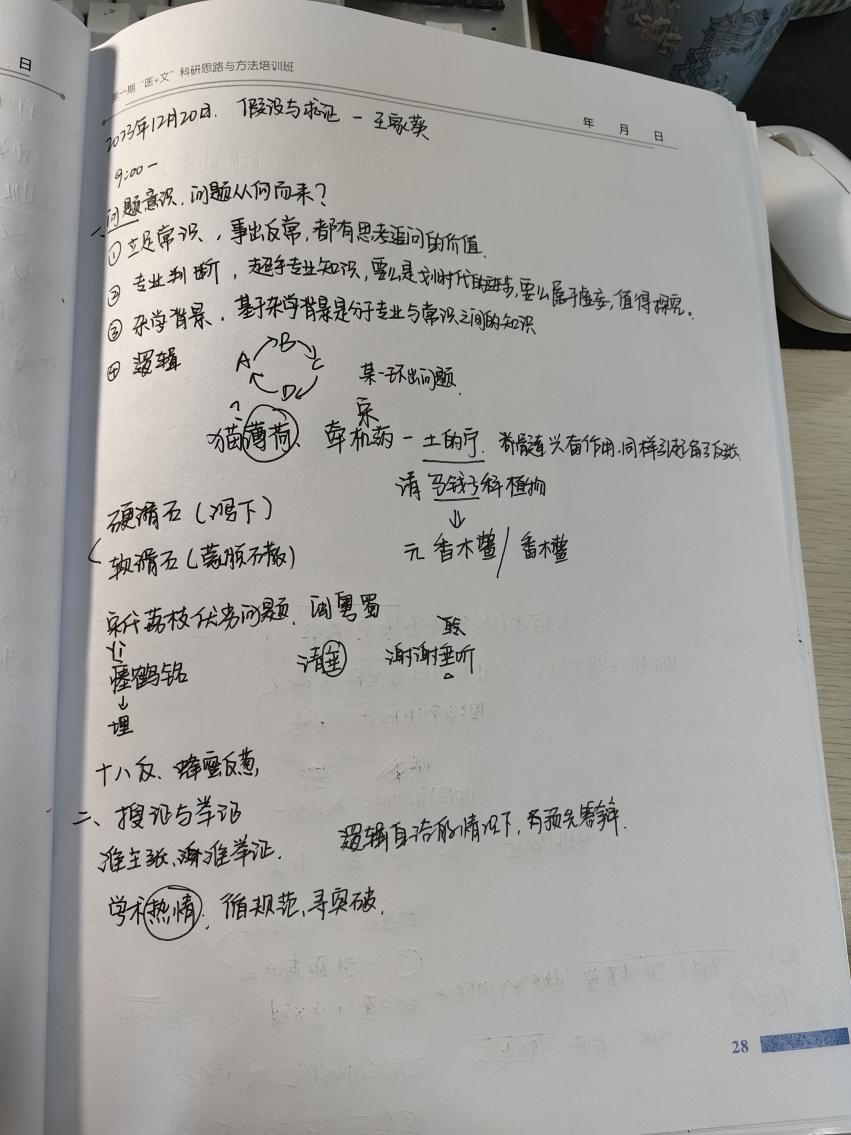 日
第一期“医+文”科研思路与方法培训班
年 月 日
2023年12月20日. 假设与求证 - 王家葵
9:00-
一、问题意识, 问题从何而来?
① 立足常识, 事出反常, 都有思考追问的价值.
② 专业判断, 超乎专业知识, 要么是划时代的进步, 要么属于虚妄, 值得探究。
③ 杂学背景, 基于杂学背景是介于专业与常识之间的知识
④ 逻辑 A B C D 某一环出问题.
? 宋
猫薄荷、牵机药 - 士的宁. 脊髓兴奋作用. 同样引起角弓反张
清 马钱子科植物
硬滑石(泻下)
元 香木鳖/番木鳖
软滑石(蒙脱石散)
宋代荔枝优劣问题. 闽粤蜀
瘗鹤铭 清垂 谢谢垂听
埋
十八反、蜂蜜反葱,
二、搜证与举证
谁主张, 谁举证. 逻辑自洽的情况下, 有预先答辩.
学术热情: 循规范、寻突破.
28